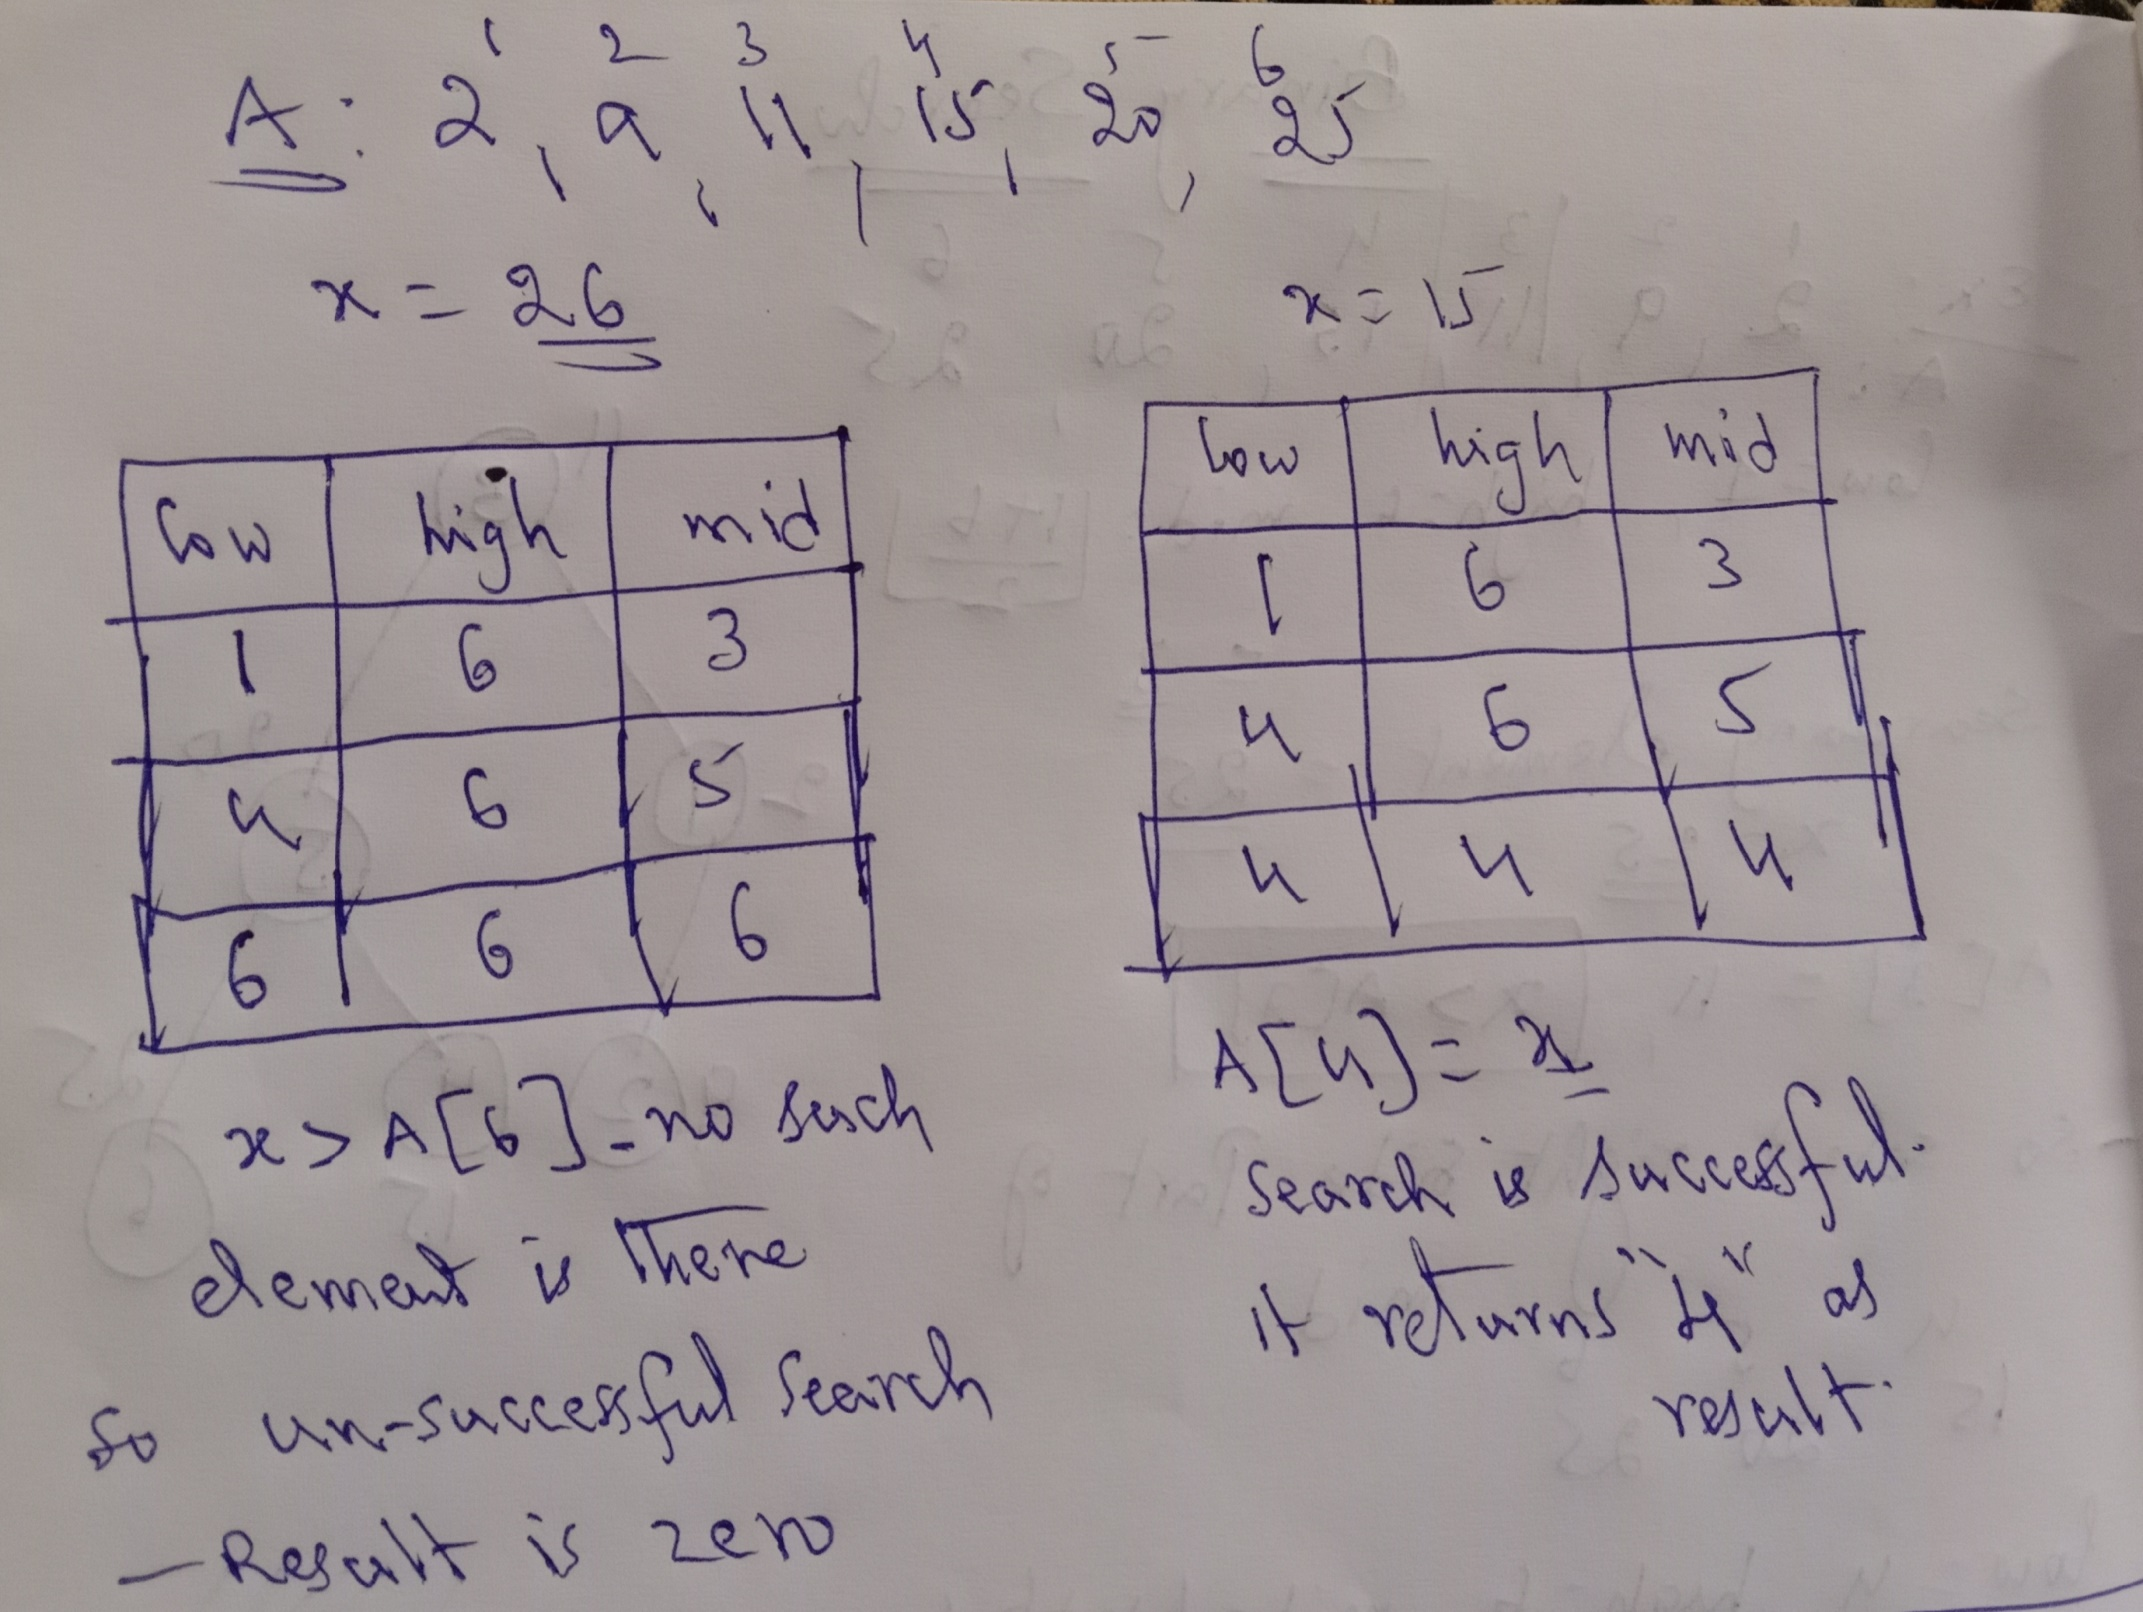 1 2 3 4 5 6
A: 2, 9, 11, 15, 20, 25
x = 26
low high mid
1 6 3
4 6 5
6 6 6
x > A[6] - no such
element is there
so un-successful search
- Result is zero
x = 15
low high mid
1 6 3
4 6 5
4 4 4
A[4] = x
search is successful.
it returns "4" as
result.